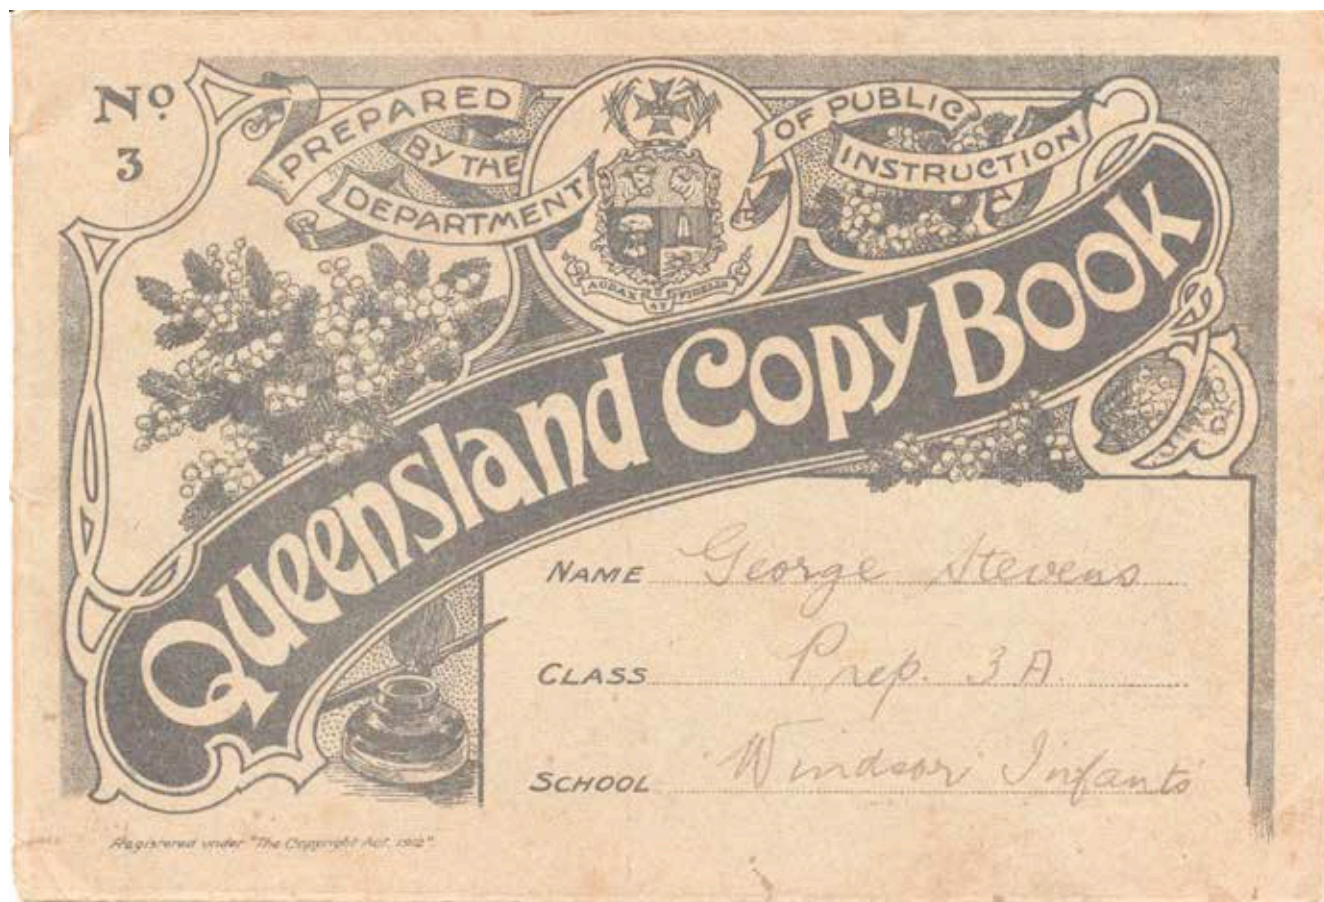 No
3
PREPARED
BY THE
DEPARTMENT
OF PUBLIC
INSTRUCTION
AUDAX AT FIDELIS
Queensland Copy Book
NAME George Stevens
CLASS Prep. 3A.
SCHOOL Windsor Infants
Registered under "The Copyright Act, 1912".